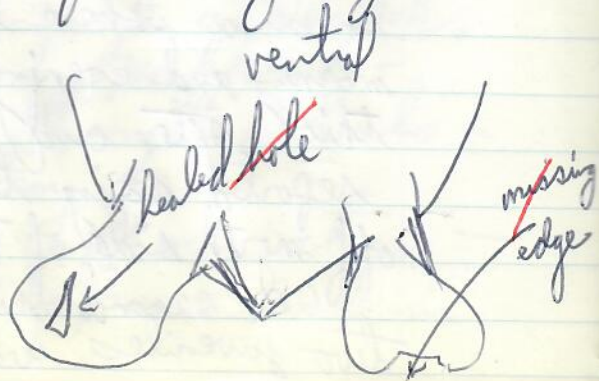 ventral
healed hole
missing
edge